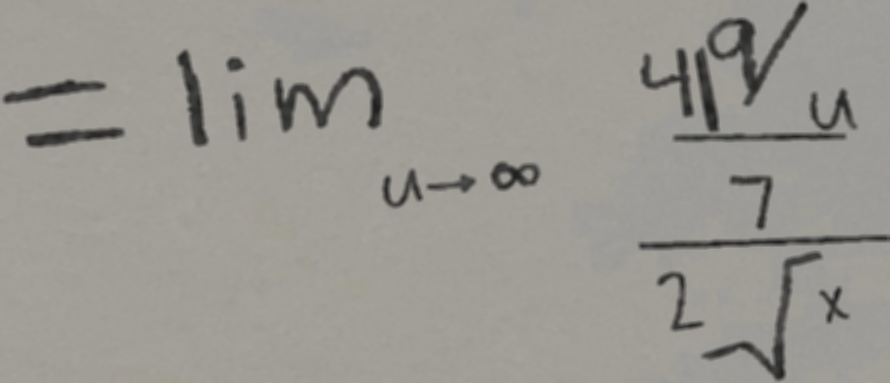 = lim u→∞ 419/u
7
2√x